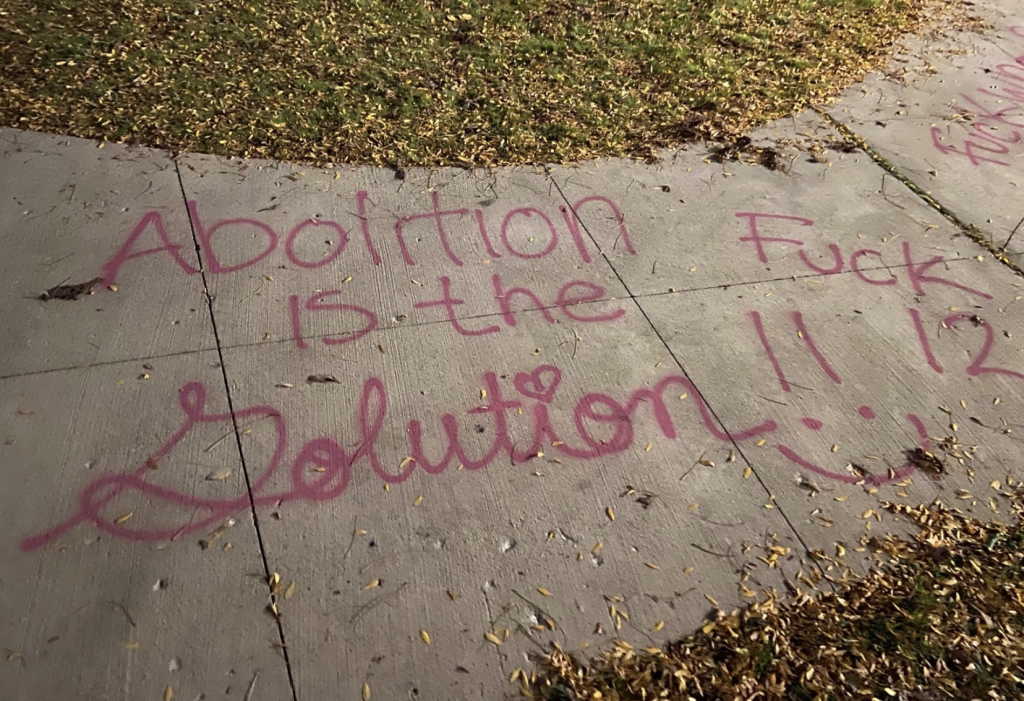 Abolition
is the
Solution
Fuck
11 12